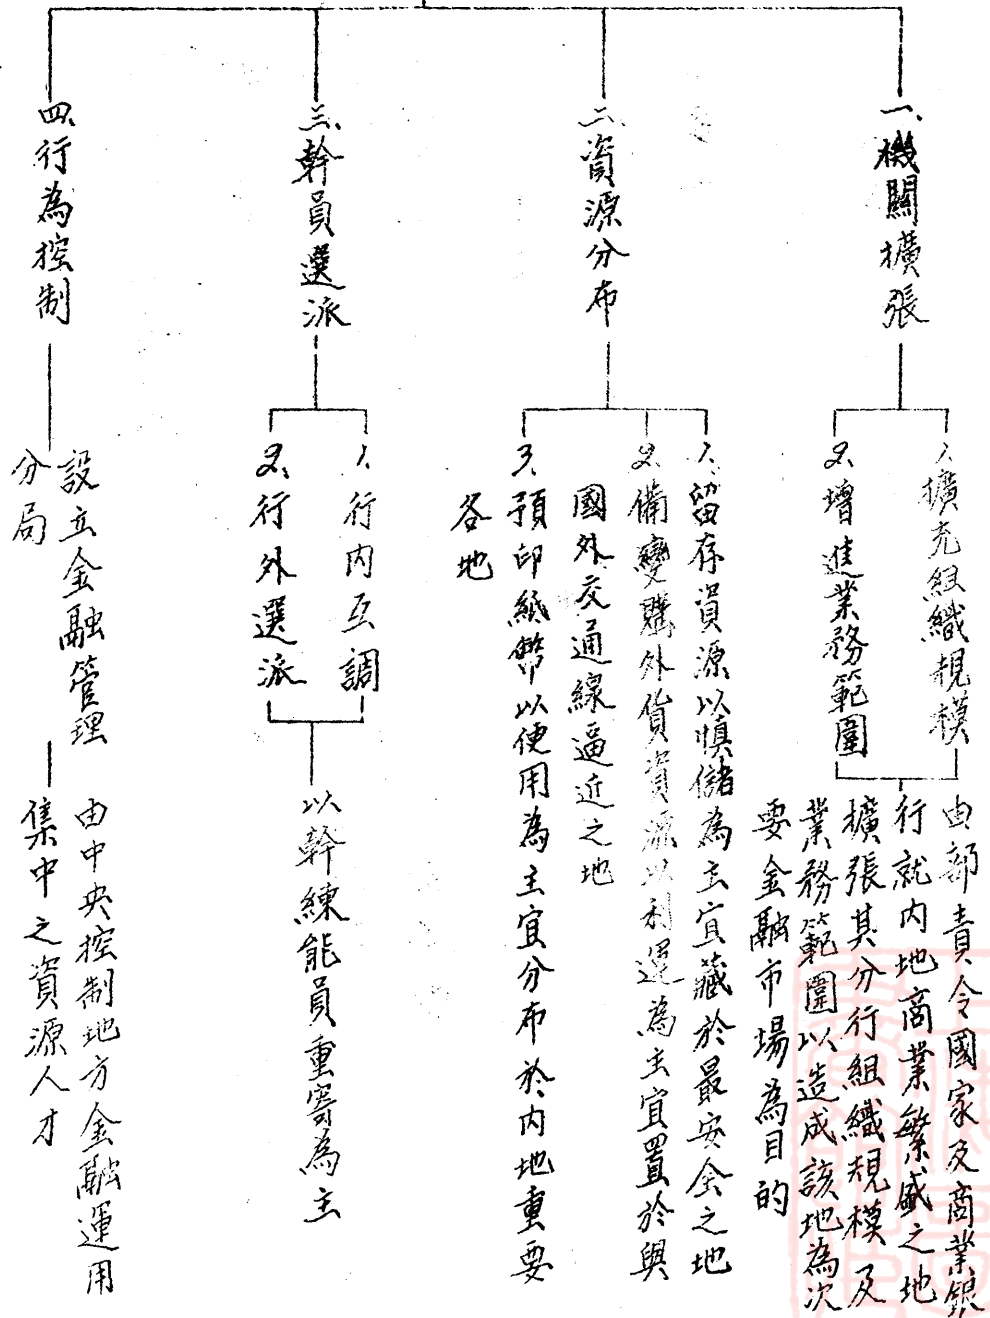 一、機關擴張
1、擴充組織規模
2、增進業務範圍
由部責令國家及商業銀
行就内地商業繁盛之地
擴張其分行組織規模及
業務範圍以造成該地為次
要金融市場為目的
二、資源分布
1、留存資源以慎儲為主宜藏於最安全之地
2、備變購外貨資源以利運為主宜置於與
國外交通線逼近之地
3、預印紙幣以便用為主宜分布於内地重要
各地
三、幹員選派
1、行内互調
2、行外選派
以幹練能員重寄為主
四、行為控制
設立金融管理
分局
由中央控制地方金融運用
集中之資源人才